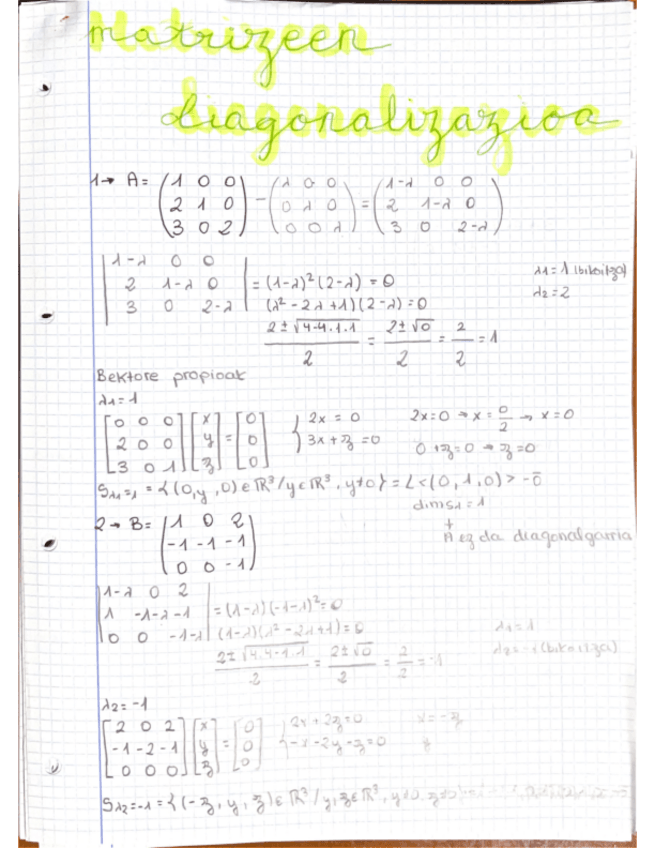 Matrizeen
diagonalizazioa
1→ A= (1 0 0 / 2 1 0 / 3 0 2) − (λ 0 0 / 0 λ 0 / 0 0 λ) = (1-λ 0 0 / 2 1-λ 0 / 3 0 2-λ)
|1-λ 0 0 / 2 1-λ 0 / 3 0 2-λ| = (1-λ)²(2-λ) = 0
(λ² - 2λ + 1)(2-λ) = 0
λ1 = 1 (bikoitza)
λ2 = 2
2±√4-4·1·1 / 2 = 2±√0 / 2 = 2/2 = 1
Bektore propioak
λ1 = 1
[0 0 0 / 2 0 0 / 3 0 1] [x / y / z] = [0 / 0 / 0] { 2x = 0 / 3x + z = 0
2x=0 → x = 0/2 → x = 0
0 + z = 0 → z = 0
Sλ1=1 = {(0,y,0) ∈ ℝ³ / y ∈ ℝ³, y≠0} = L<(0,1,0)> - 0̄
dim Sλ = 1
A ez da diagonalgarria
2→ B= (1 0 2 / -1 -1 -1 / 0 0 -1)
|1-λ 0 2 / 1 -1-λ -1 / 0 0 -1-λ| = (1-λ)(-1-λ)² = 0
(1-λ)(λ² - 2λ + 1) = 0
λ1 = 1
λ2 = -1 (bikoitza)
2±√4·4-1·1 / 2 = 2±√0 / 2 = 2/2 = -1
λ2 = -1
[2 0 2 / -1 -2 -1 / 0 0 0] [x / y / z] = [0 / 0 / 0] { 2x + 2z = 0 / -x - 2y - z = 0
x = -z
y
Sλ2=-1 = {(-z, y, z) ∈ ℝ³ / y, z ∈ ℝ³, y≠0, z≠0}